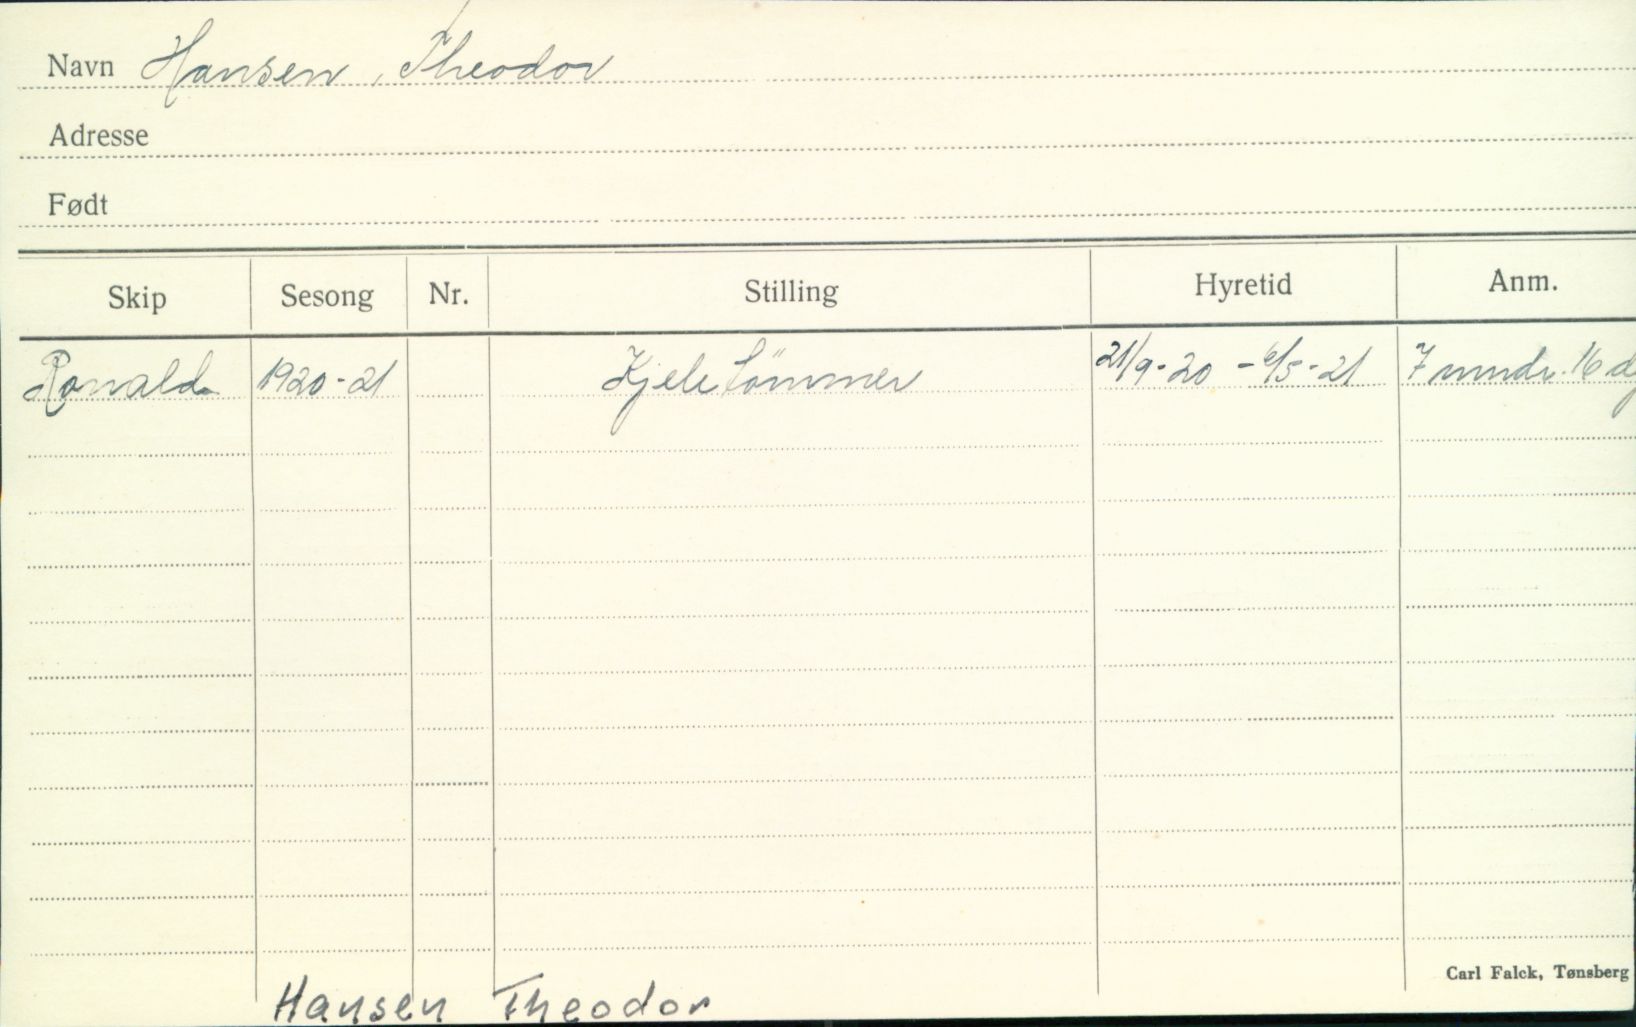 Navn Hansen, Theodor
Adresse
Født
Skip Sesong Nr. Stilling Hyretid Anm.
Ronald 1920-21 Kjele tömmer 21/9-20 - 6/5-21 7 mndr. 16 dg
Carl Falck, Tønsberg
Hansen Theodor